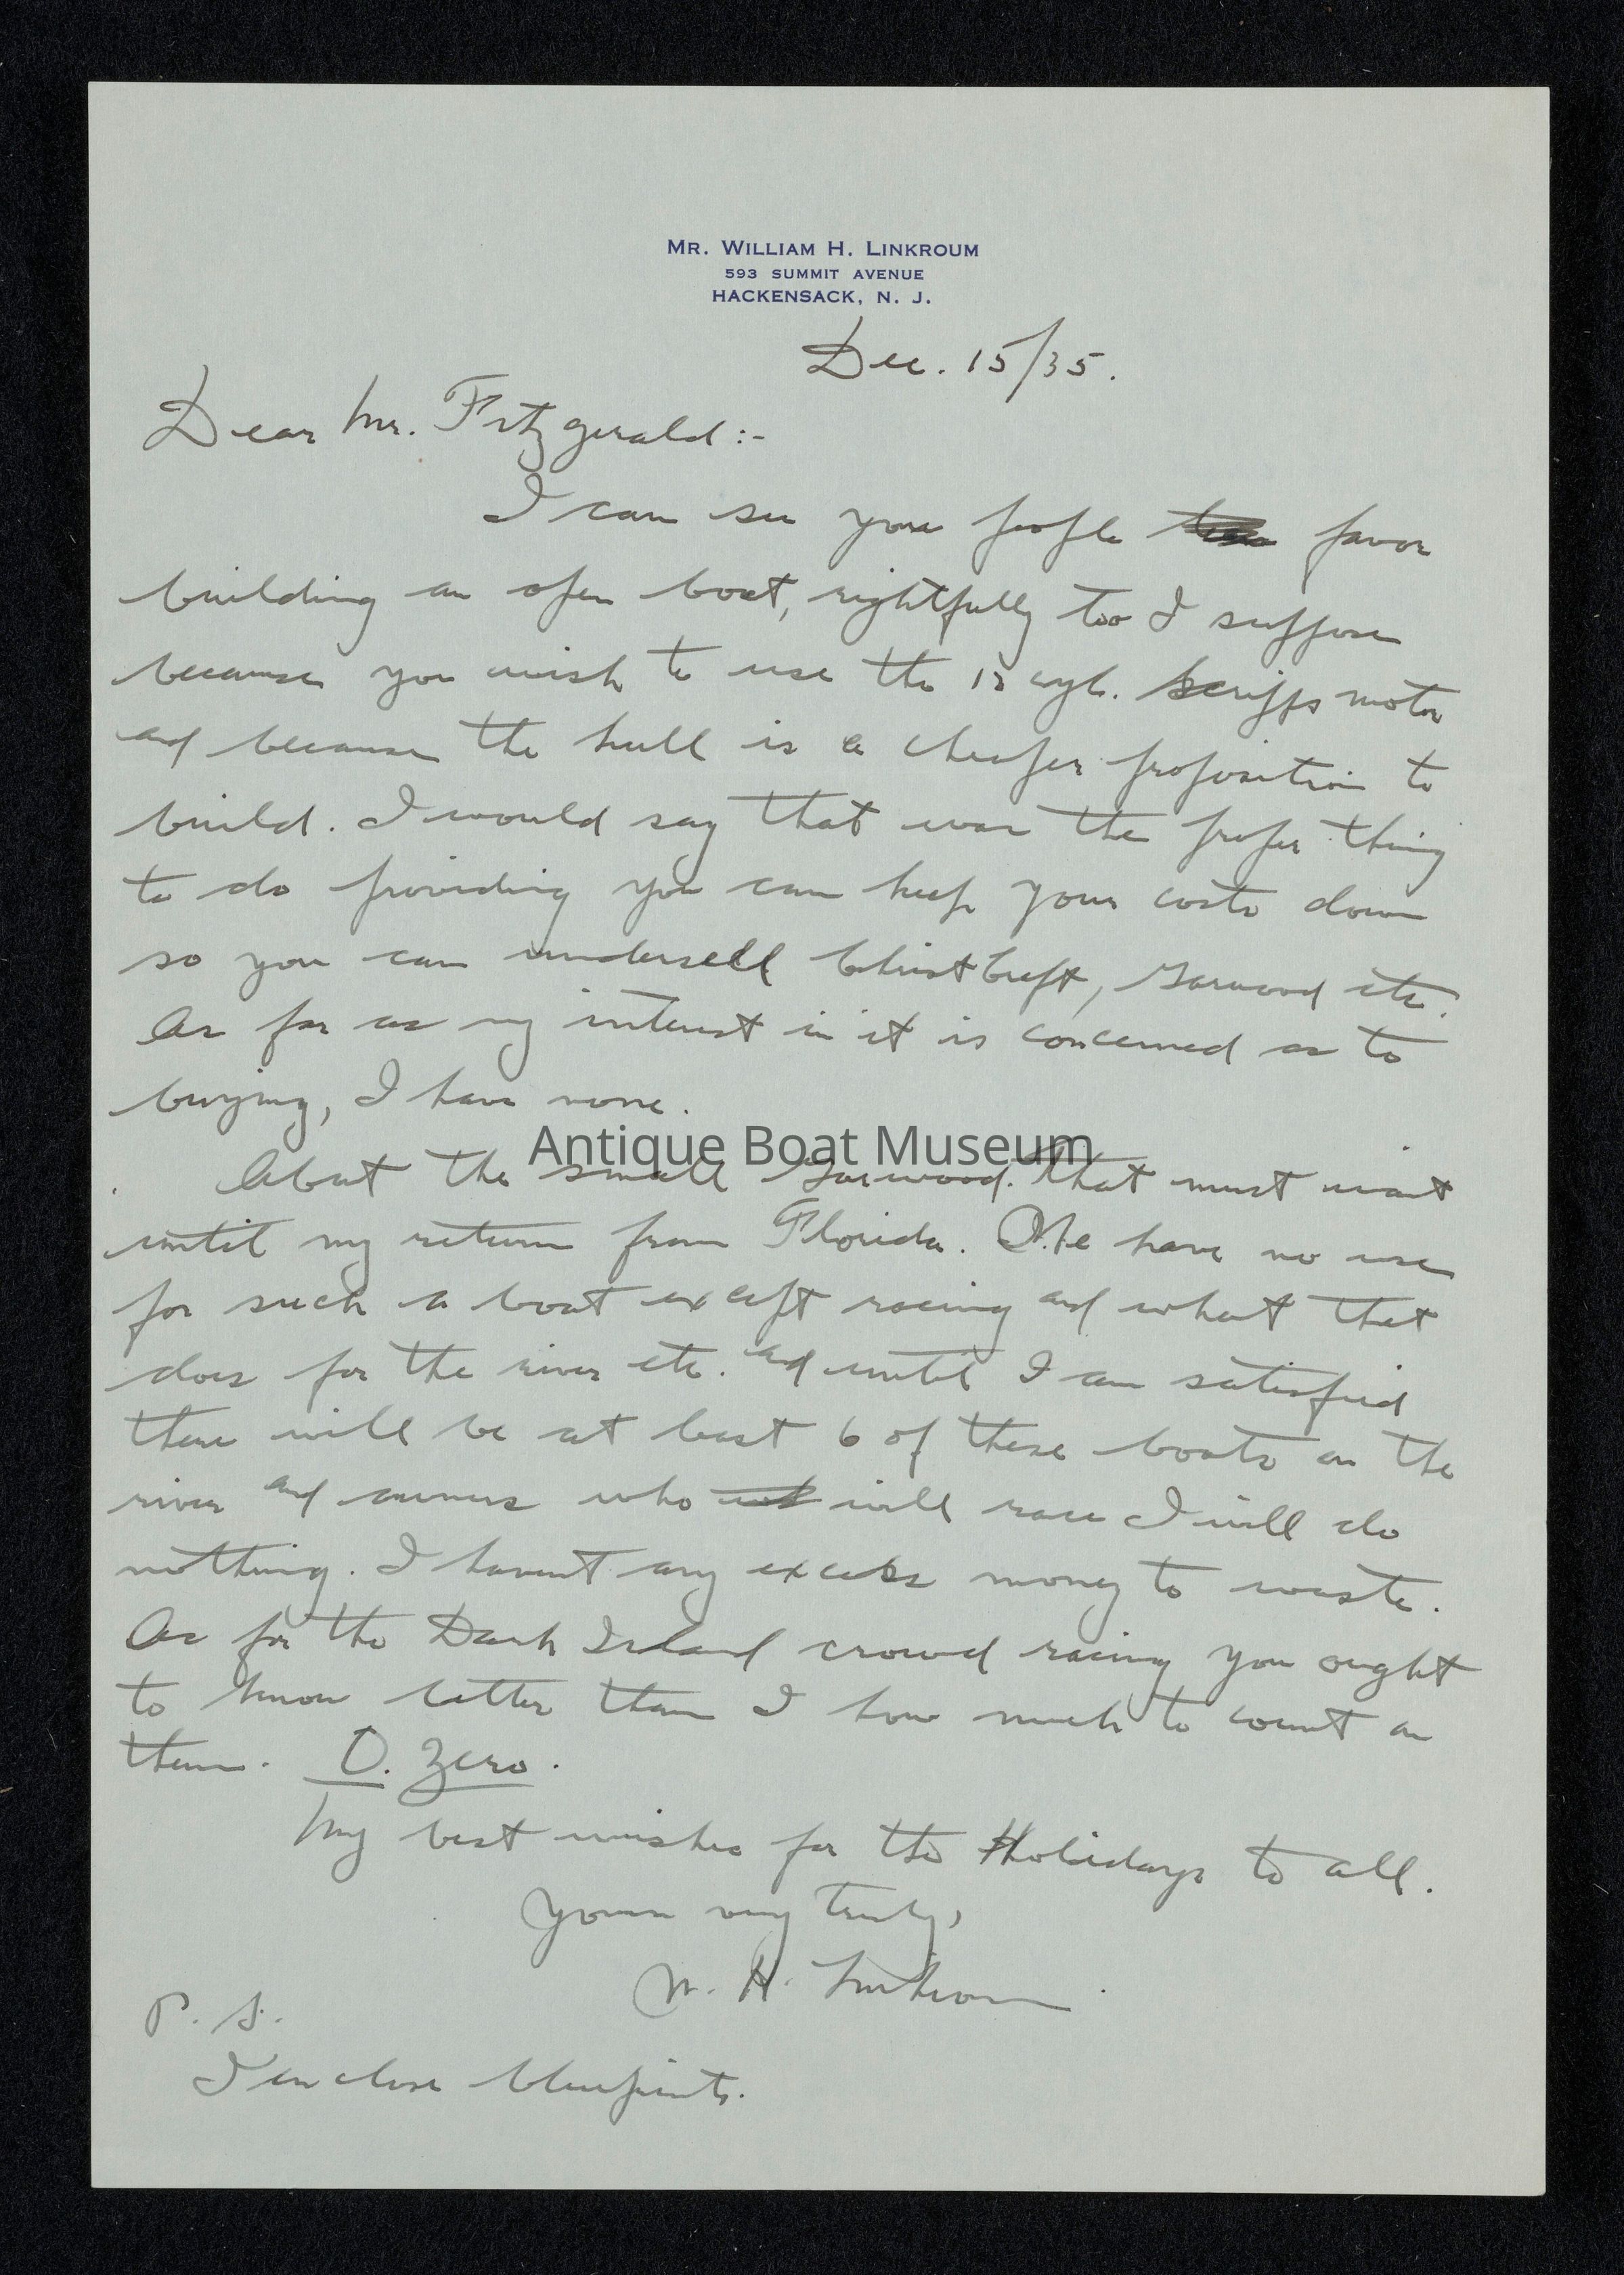 MR. WILLIAM H. LINKROUM
593 SUMMIT AVENUE
HACKENSACK, N. J.
Dec. 15/35.
Dear Mr. Fitzgerald:-
I can see you people favor
building an open boat, rightfully too I suppose
because you wish to use the 12 cyl. Scripps motor
and because the hull is a cheaper proposition to
build. I would say that was the proper thing
to do providing you can keep your costs down
so you can undersell Christ Craft, Garwood etc.
As far as my interest in it is concerned as to
buying, I have none.
Antique Boat Museum
About the small Garwood. That must wait
until my return from Florida. We have no use
for such a boat except racing and what that
does for the river etc. and until I am satisfied
there will be at least 6 of these boats on the
river and owners who will race I will do
nothing. I havent any excess money to waste.
As for the Dark Island crowd racing you ought
to know better than I how much to count on
them. O. Zero.
My best wishes for the Holidays to all.
Yours very truly,
W. H. Linkroum
P. S.
I enclose blueprints.